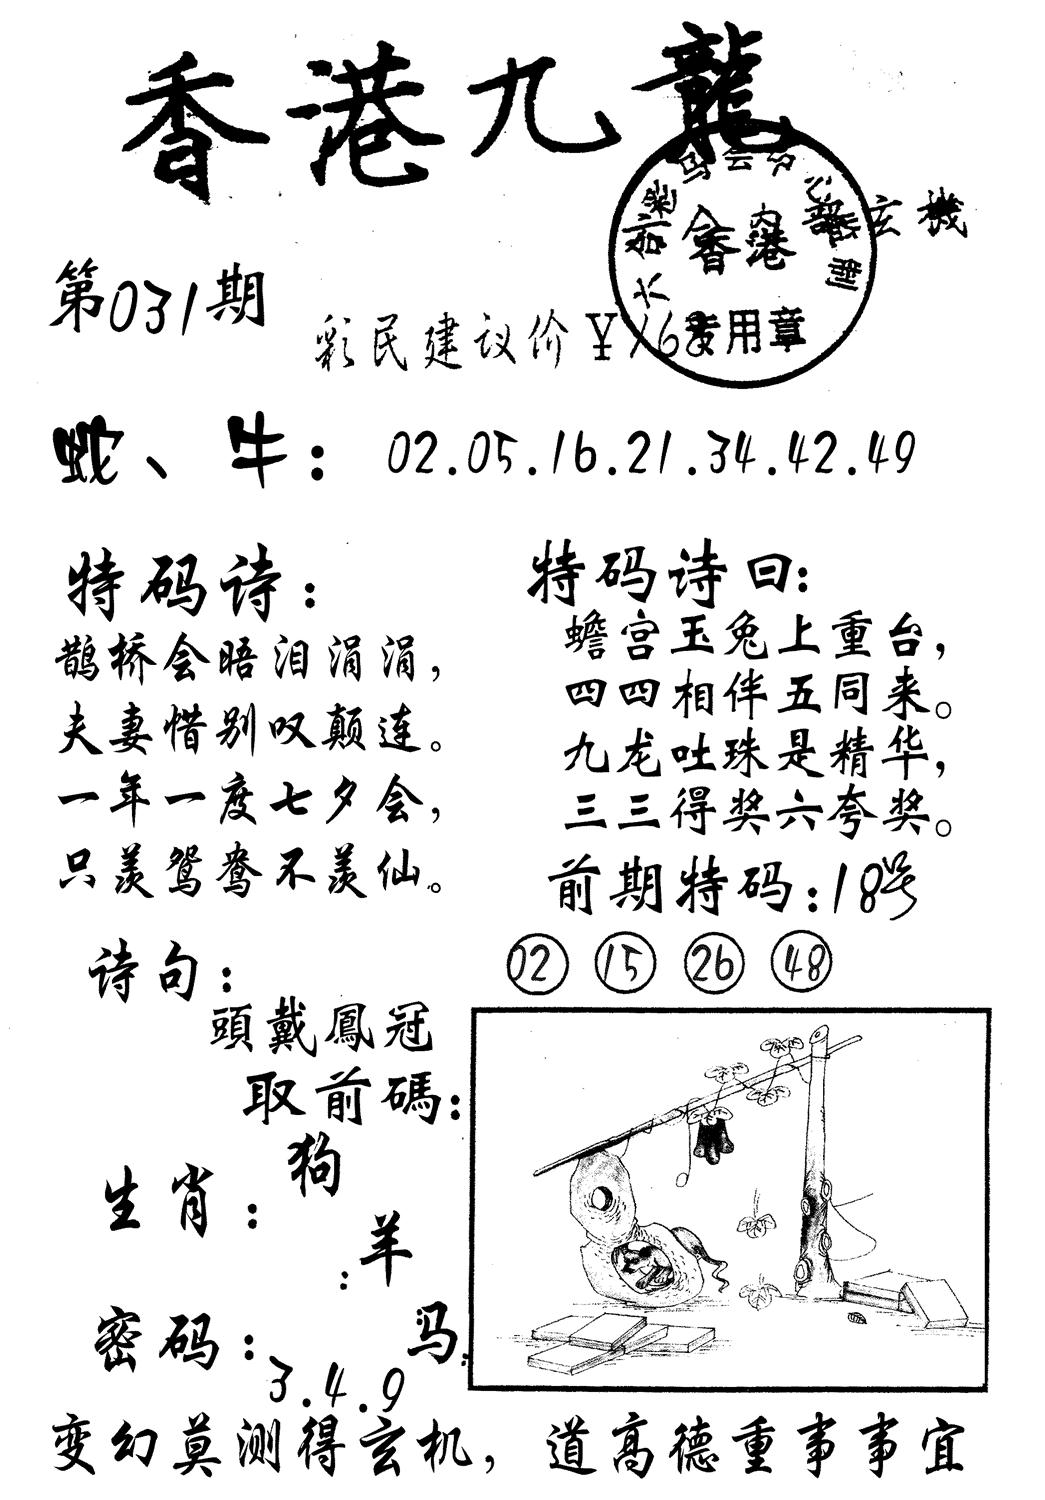 香港九龍
六合彩马会中心
香港
会内部玄機
专用章
第031期
彩民建议价¥168
蛇、牛：02.05.16.21.34.42.49
特码诗：
鹊桥会晤泪涓涓，
夫妻惜别叹颠连。
一年一度七夕会，
只羡鸳鸯不羡仙。
特码诗曰：
蟾宫玉兔上重台，
四四相伴五同来。
九龙吐珠是精华，
三三得奖六夸奖。
前期特码：18号
02 15 26 48
诗句：
頭戴鳳冠
取前碼：
生肖：狗
羊
马
密码：3.4.9
变幻莫测得玄机，道高德重事事宜